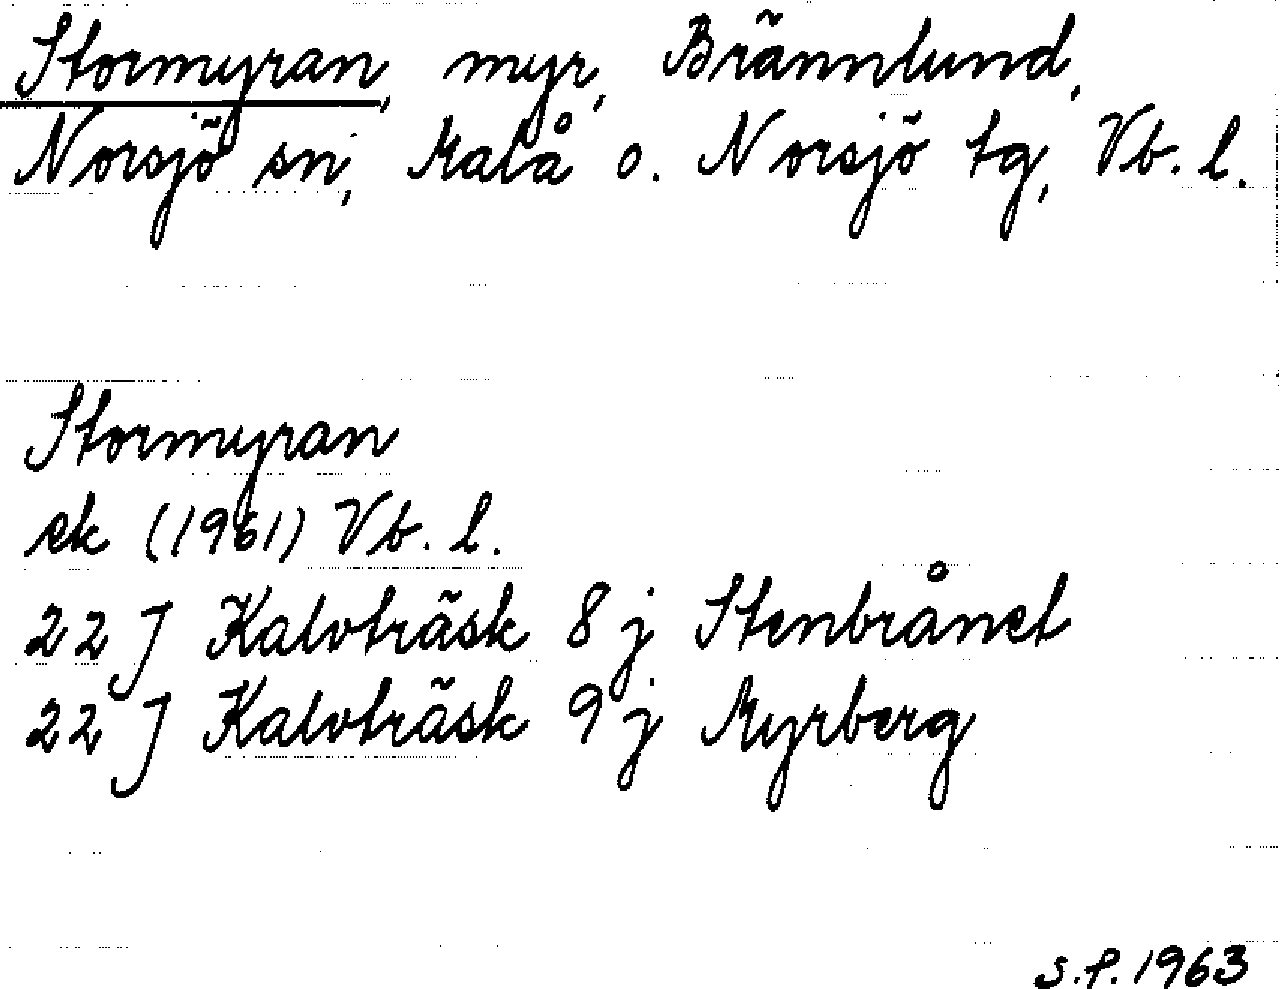 Stormyran, myr, Brännlund,
Norsjö sn, Malå o. Norsjö tg, Vb. l.
Stormyran
ek (1961) Vb. l.
22 J Kalvträsk 8 j Stenbrånet
22 J Kalvträsk 9 j Myrberg
S.P. 1963